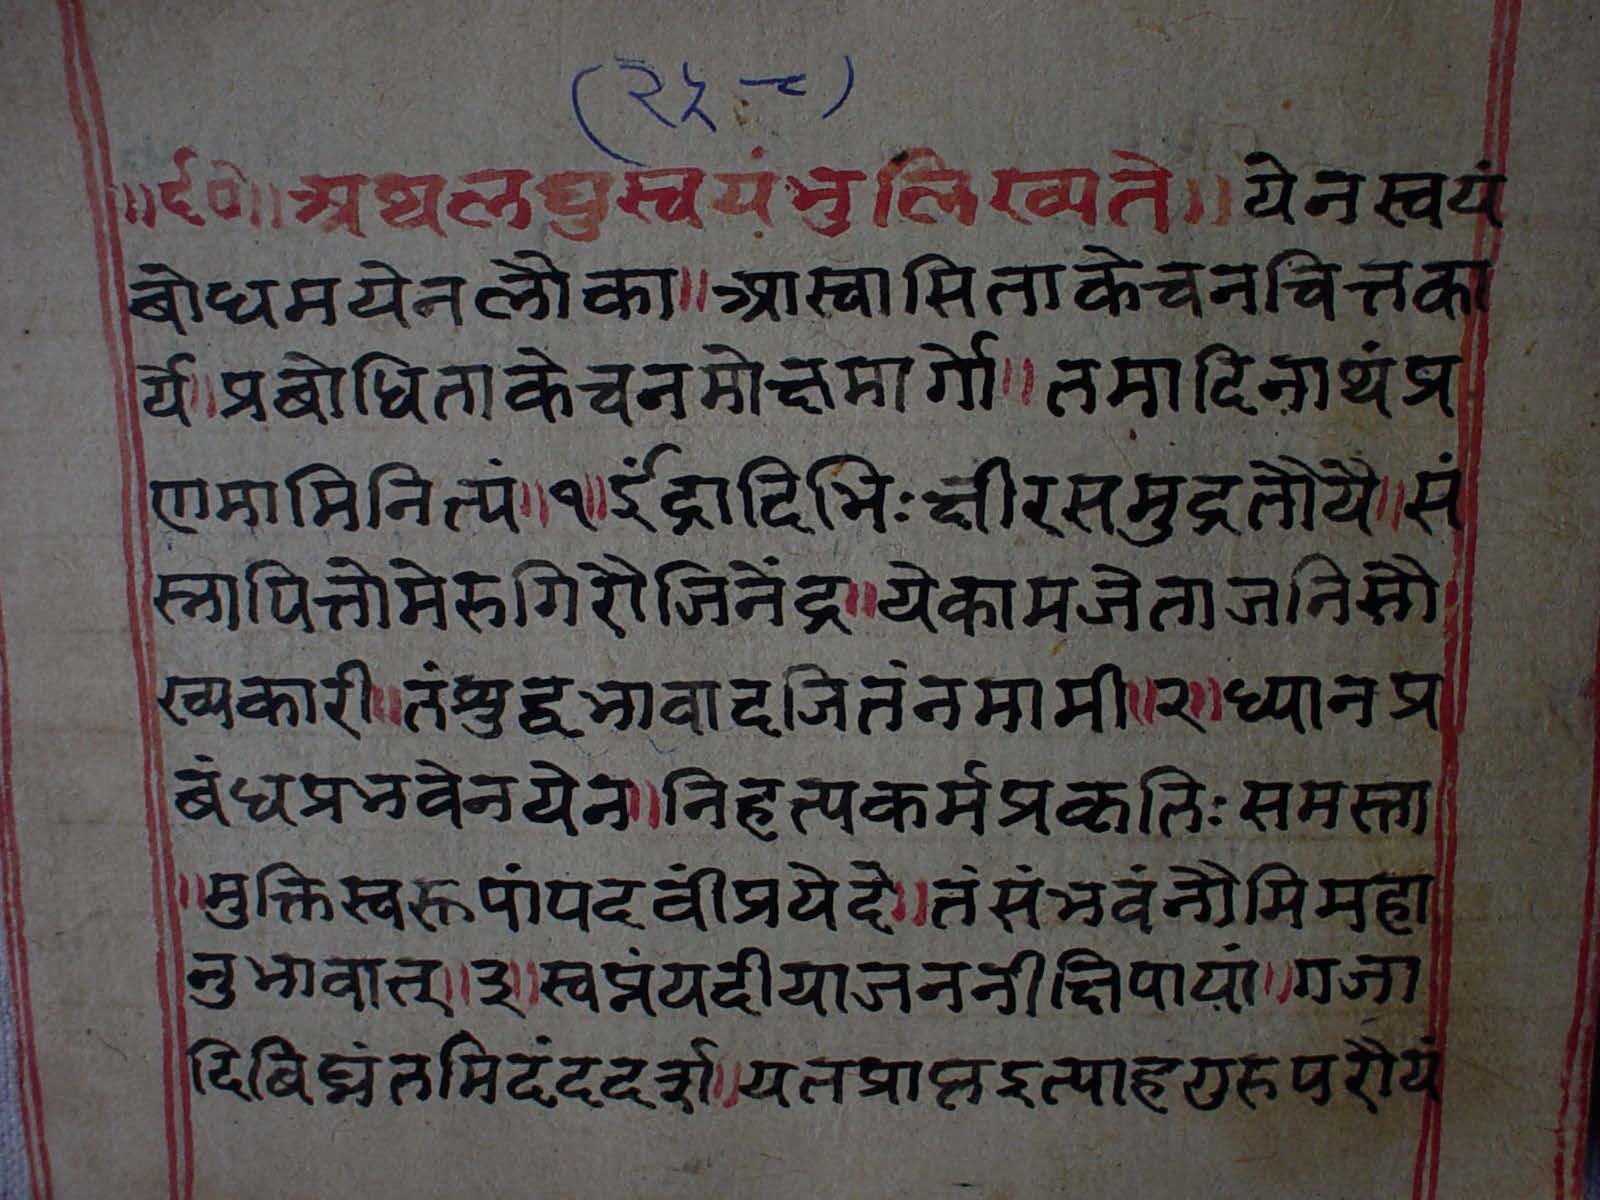 (२५८)
॥६०॥ अथलघुस्वयंभुलिख्यते॥ येनस्वयं
बोधमयेनलौका॥आस्वासिताकेचनचित्तका
र्ये॥प्रबोधिताकेचनमोक्षमार्गो॥तमादिनाथंप्र
णमामिनित्यं॥१॥इंद्रादिभिःक्षीरसमुद्रतौयै॥सं
स्नापित्तोमेरुगिरौजिनेंद्र॥येकामजेताजनिसौ
ख्यकारी॥तंशुद्धभावादजितंनमामी॥२॥ध्यानप्र
बंधप्रभवेनयेन॥निहत्यकर्मप्रकृतिःसमस्ता
॥मुक्तिस्वरूपांपदवींप्रयेदे॥तंसंभवंनौमिमहा
नुभावात्॥३॥स्वप्नंयदीयाजननीक्षिपायां॥गजा
दिबिह्नंतमिदंददर्श॥यतप्राप्तइत्याहगुरुपरौयं